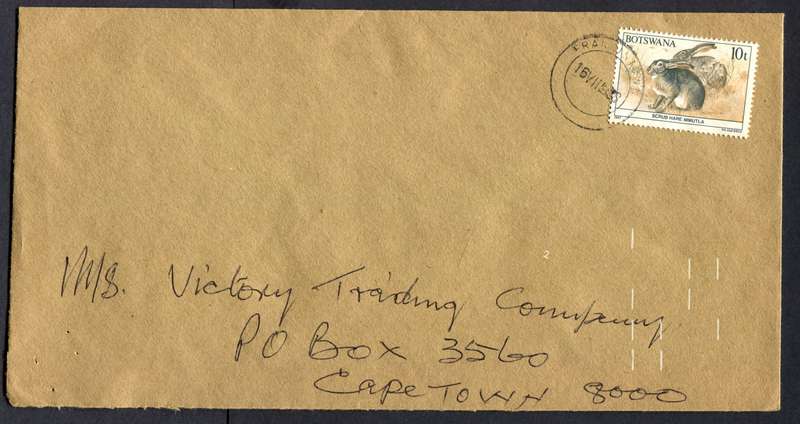 BOTSWANA
10t
SCRUB HARE MMUTLA
2
M/S. Victory Trading Company
PO Box 3560
Cape Town 8000